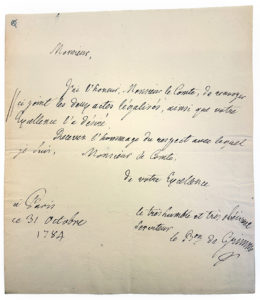 Monsieur,
J'ai l'honneur, Monsieur le Comte, de renvoyer
ci joint les deux actes légalisés, ainsi que votre
Excellence l'a désiré.
Recevez l'hommage du respect avec lequel
je suis, Monsieur le Comte.
De votre Excellence.
à Paris
ce 31 Octobre
1784
le très humble et très
serviteur
le Bon de